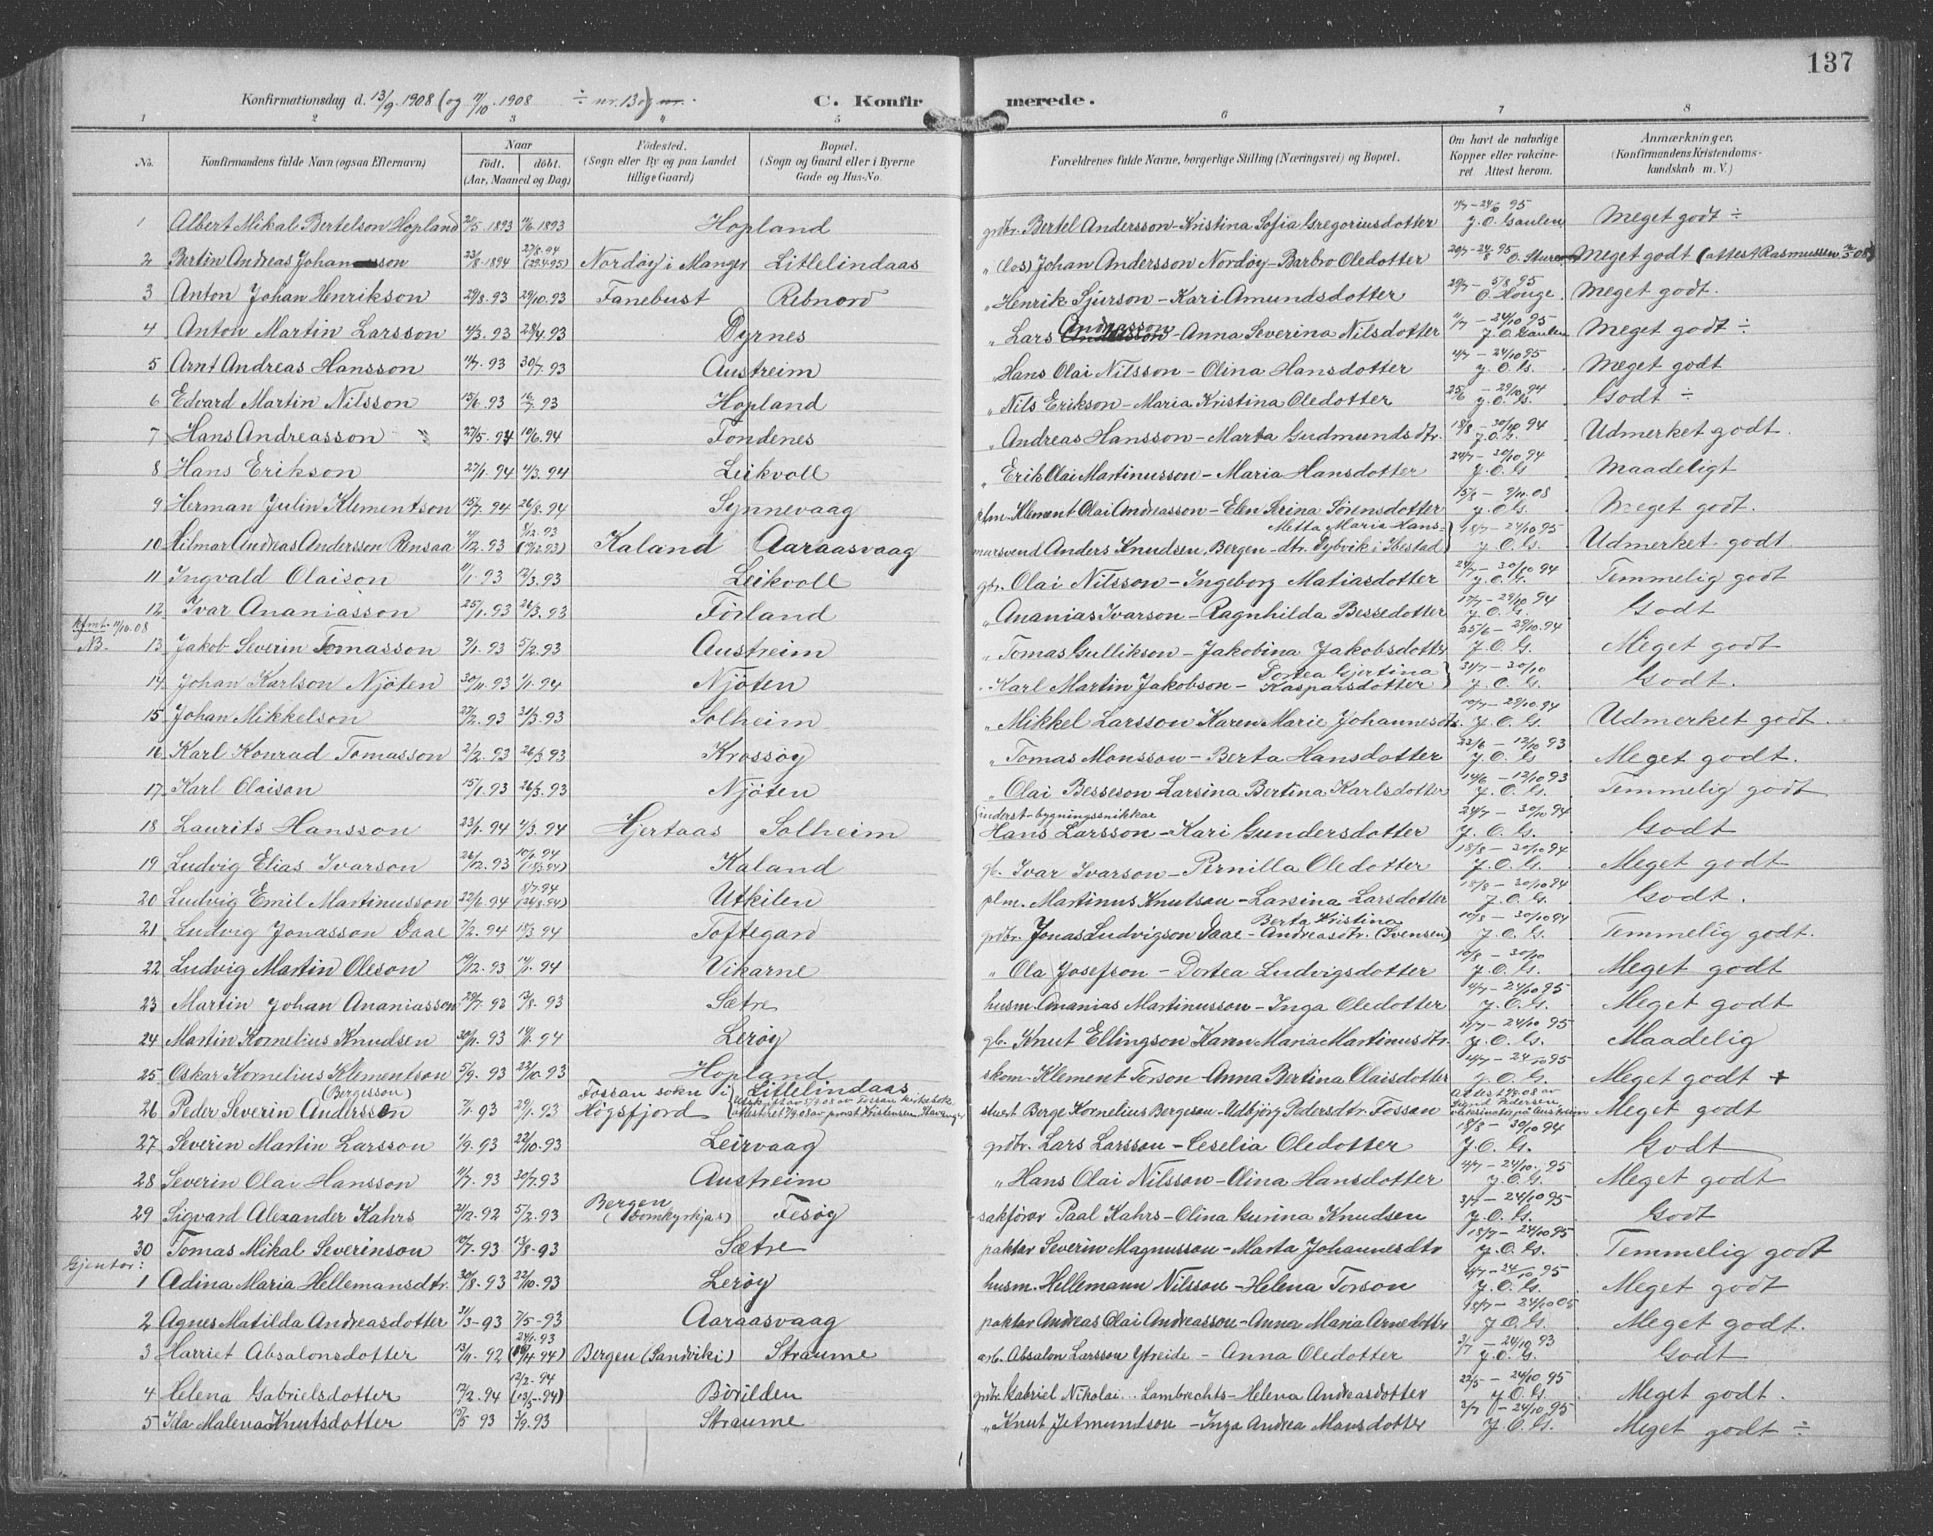 137
Konfirmationsdag d. 13/9 1908 (og 11/10 1908 ÷ nr. 13 og nr.
C. Konfir merede.
1 2 3 4 5 6 7 8
No. Konfirmandens fulde Navn (ogsaa Efternavn) Naar født. døbt. (Aar, Maaned og Dag) Fødested. (Sogn eller By og paa Landet tillige Gaard) Bopæl. (Sogn og Gaard eller i Byerne Gade og Hus-No. Forældrenes fulde Navne, borgerlige Stilling (Næringsvei) og Bopæl. Om havt de naturlige Kopper eller vakcineret Attest herom. Anmærkninger. (Konfirmandens Kristendomskundskab m. V.)
1 Albert Mikal Bertelson Hopland 1893 1893 Hopland grdbr. Bertel Andersson - Kristina Sofia Gregoriusdotter J. O. Gaulen Meget godt ÷
2 Bertin Andreas Johansson 23/8 1894 27/8.94 (29.4.95) Nordøy i Manger Litlelindaas " (los) Johan Andersson Nordøy - Barbro Oledotter Meget godt (attest Rasmussen
3 Anton Johan Henrikson 29/8.93 29/10.93 Fanebust Rebnord " Henrik Sjurson - Kari Amundsdotter 29/7 - 5/8 95 O. Houge. Meget godt.
4 Anton Martin Larsson 93 23/4.93 Dyrnes " Lars Andersson - Anna Severina Nilsdotter 11/7 - 24/10 95 J. O. Gaulen Meget godt ÷
5 Arnt Andreas Hansson 11/7.93 30/7.93 Austreim " Hans Olai Nilsson - Olina Hansdotter 4/7 - 24/10 95 J. O. G. Meget godt
6 Edvard Martin Nilsson 15/6.93 16/7.93 Hopland " Nils Erikson - Maria Kristina Oledotter 25/6 - 29/10 94 J. O. G. Godt ÷
7 Hans Andreasson 27/5.94 10/6.94 Tondenes " Andreas Hansson - Marta Gudmundsdtr. 18/8 - 30/10 94 J. O. G. Udmerket godt.
8 Hans Erikson 27/1.94 4/3.94 Leikvoll " Erik Olai Martinusson - Maria Hansdotter 24/7 - 30/10 94 J. O. G. Maadeligt
9 Herman Julin Klementson 15/7.94 26/8.94 Synnevaag plm. Klement Olai Andreasson - Elen Serina Sørensdotter 15/8 - 9/11.08 J. O. G. Meget godt.
10 Hilmar Andreas Andersson Rensaa 93 Kaland Aaraasvaag mursvend Anders Knudsen, Bergen - Metta Maria Hansdtr. Dybvik i Ibestad) 18/7 - 24/10 95 J. O. G. Udmerket godt
11 Ingvald Olaison 93 12/3.93 Leikvoll gbr. Olai Nilsson - Ingeborg Matiasdotter 24/7 - 30/10 94 J. O. G. Temmelig godt
12 Ivar Ananiasson 25/1.93 26/3.93 Førland " Ananias Ivarson - Ragnhilda Bessedotter 17/7 - 29/10 94 J. O. G. Godt
kfmt. 11/10.08
NB. 13 Jakob Severin Tomasson 9/1.93 5/2.93 Austreim " Tomas Gullikson - Jakobina Jakobsdotter 25/6 - 29/10.94 J. O. G. Meget godt
14 Johan Karlson Njøten 30/11.93 1/1.94 Njøten " Karl Martin Jakobson - Dortea Gjertina Kasparsdotter 31/7 - 30/10 J. O. G. Godt.
15 Johan Mikkelson 27/2.93 31/3.93 Solheim " Mikkel Larsson Karen Marie Johannesdtr. 19/7 - 29/10.94 J. O. G. Udmerket godt.
16 Karl Konrad Tomasson 2/2.93 26/3.93 Krossøy " Tomas Monsson - Berta Hansdotter 22/6 - 13/10 93 J. O. G. Meget godt.
17 Karl Olaison 15/1.93 26/3.93 Njøten " Olai Besseson Larsina Bertina Karlsdotter 14/6 - 13/10 93 J. O. G. Temmelig godt
18 Laurits Hansson 23/1.94 4/3.94 Hjertaas Solheim inderst - bygningssnikkar Hans Larsson - Kari Gundersdotter 24/7 - 30/10 94 J. O. G. Godt
19 Ludvig Elias Ivarson 26/12.93 Kaland gb. Ivar Ivarson - Pernilla Oledotter 18/8 - 30/10 94 J. O. G. Meget godt
20 Ludvig Emil Martinusson 22/6.94 8/7.94 (26/8.94) Utkilen plm. Martinus Knutson - Larsina Larsdotter 18/8 - 30/10 94 J. O. G. Godt.
21 Ludvig Jonasson Daae 7/2.94 18/3.94 Toftegard grdbr. Jonas Ludvigson Daae - Berta Kristina Andreasdtr. (Svensen) 10/8 - 30/10 94 J. O. G. Temmelig godt.
22 Ludvig Martin Oleson 19/12.93 94 Vikarne " Ola Josefson - Dortea Ludvigsdotter 10/8 - 30/10 J. O. G. Meget godt
23 Martin Johan Ananiasson 29/7.93 13/8.93 Sætre husm. Ananias Martinusson - Inga Oledotter 4/7 - 24/10 95 J. O. G. Meget godt
24 Martin Kornelius Knudsen 30/11.93 94 Lerøy gb. Knut Ellingson Karen Maria Martinusdtr. 11/7 - 24/10 95 J. O. G. Maadelig
25 Oskar Kornelius Klementson 5/9.93 22/10.93 Hopland skom. Klement Torson - Anna Bertina Olaisdotter 4/7 - 24/10 95 J. O. G. Meget godt +
26 Peder Severin Andersson (Bergesson) 93 29/1.93 Fossan sokn i Høgsfjord Litlelindaas stuert Berge Kornelius Bergeson - Udbjörg Pedersdtr. Fossan Meget godt
27 Severin Martin Larsson 1/9.93 22/10.93 Leirvaag grdbr. Lars Larsson - Cecelia Oledotter 18/8 - 30/10 94 J. O. G. Godt
28 Severin Olai Hansson 11/7.93 30/7.93 Austreim " Hans Olai Nilsson - Olina Hansdotter 4/7 - 24/10. 95 J. O. G. Meget godt
29 Sigvard Alexander Kahrs 21/12.92 5/2.93 Bergen (Domkyrkja) Fesøy sakførar Paal Kahrs - Olina Gurina Knudsen 3/7 - 24/10 95 J. O. G. Godt
30 Tomas Mikal Severinson 10/7.93 13/8.93 Sætre paktar Severin Magnusson - Marta Johannesdtr 18/7 - 24/10 95 J. O. G. Temmelig godt
Gjentor:
1 Adina Maria Hellemansdtr. 30/8.93 22/10.93 Lerøy husm. Hellemann Nilsson - Helena Torson 4/7 - 24/10 95 J. O. G. Meget godt
2 Agnes Matilda Andreasdotter 31/3-93 7/5-93 Aaraasvaag paktar Andreas Olai Andreasson - Anna Maria Arnedottr 18/7 - 24/10 05 J. O. G. Meget godt.
3 Harriet Absalonsdotter 13/11.92 Bergen (Sandviki) Straume arb. Absalon Larsson Ytreide - Anna Oledotter 3/7 - 24/10 93 J. O. G. Godt
4 Helena Gabrielsdotter 94 (13/5-94) Børilden grdbr. Gabriel Nikolai Lambrechts - Helena Andreasdotter 22/5 - 24/10 95 J. O. G. Meget godt.
5 Ida Malena Knutsdotter 93 3/9.93 Straume " Knut Jetmundson - Inga Andrea Monsdotter 2/7 - 24/10 95 J. O. G. Meget godt ÷